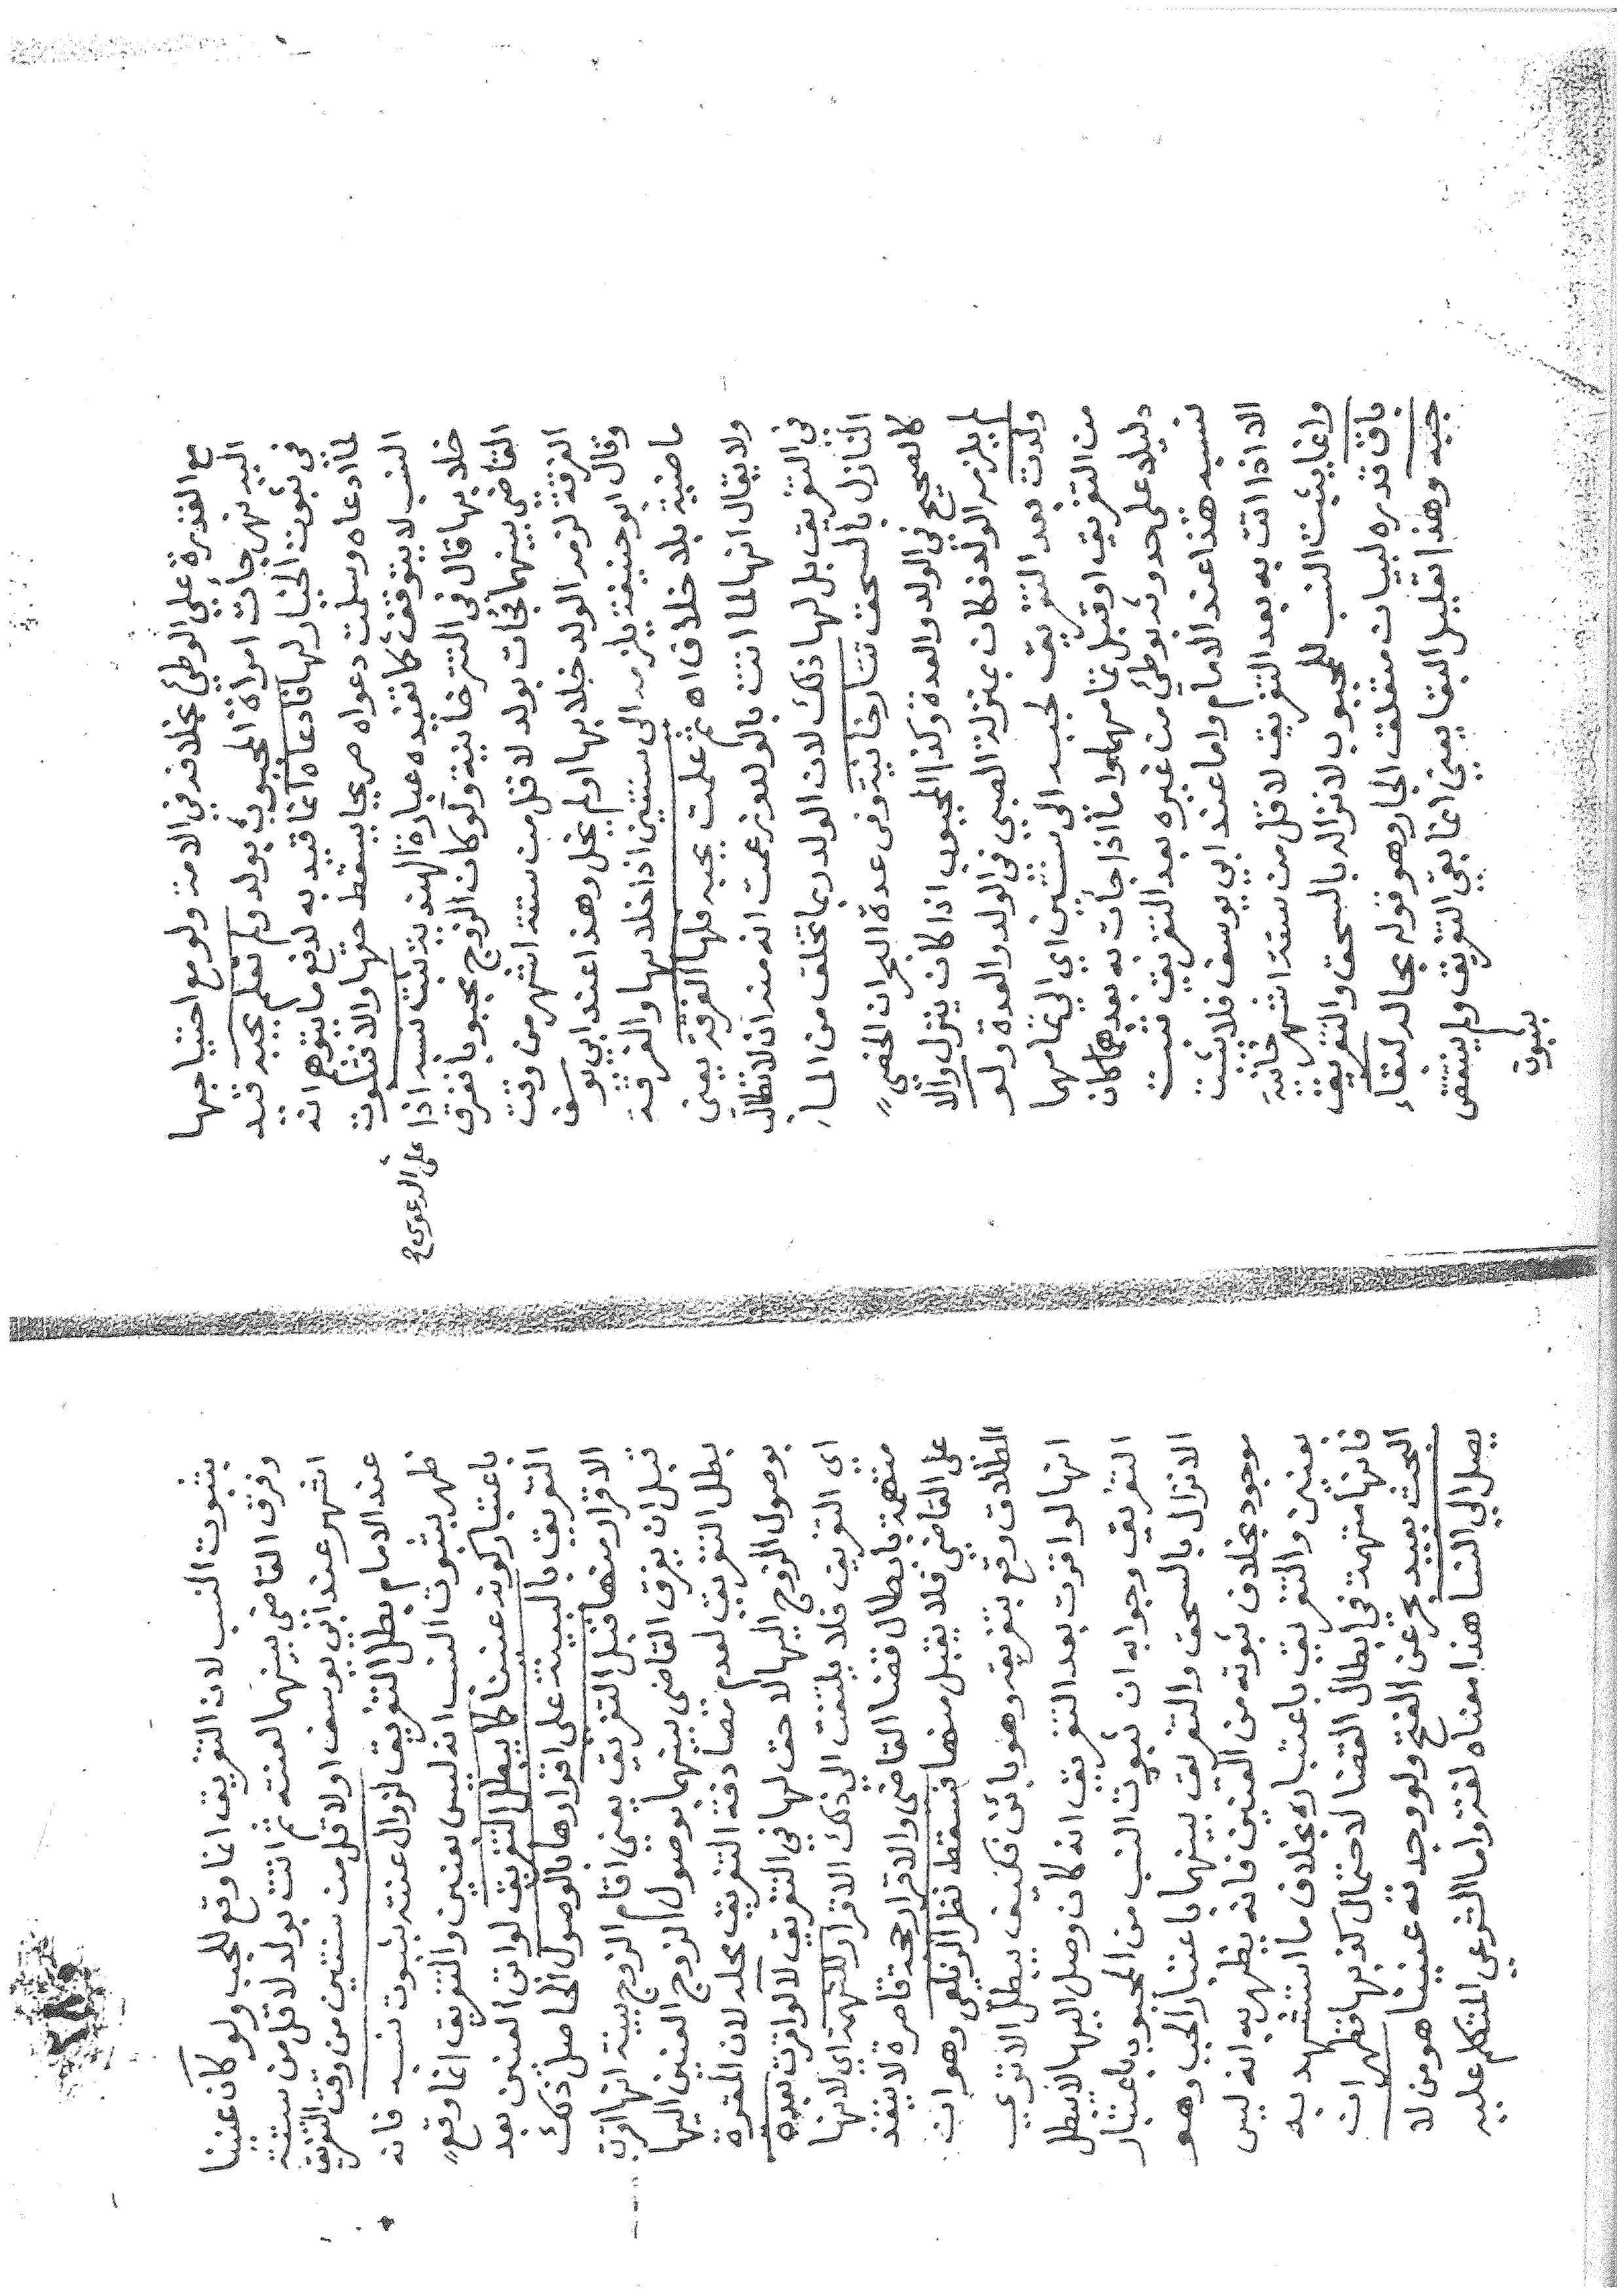 مع القدرة على الوطئ بخلافه في الامة ولو مع احتياجها
اليه نهر جات امراة المجبوب بولد ولم تعلم بجبه قيد
في ثبوت الخيار لها فادعاه انما قيد به لدفع ما يتوهم انه
لما ادعاه وسلمت دعواه صريحا يسقط حقها والا فثبوت
النسب لا يتوقف كما تفيده عبارة الهندية ثبت نسبه اذا
على الدعوى
خلا بها قال في التترخانية ولو كان الزوج مجبوبا ففرق
القاضي بينهما فجات بولد لاقل من ستة اشهر من وقت
الفرقة لزمه الولد خلا بها اولم يخل وهذا عند ابي يوسف
وقال ابو حنيفة يلزمه الى سنتين اذا خلا بها والفرقة
ماضية بلا خلاف اه ثم علمت بجبه فلها الفرقة يعني
ولا يقال انها لما اتت بالولد وزعمت انه منه ان لا تطالب
في التفريق بل لها ذلك لان الولد ربما تخلق من الماء
النازل بالسحق تتارخانية وفي عدة البحر ان الخصي
كالصحيح في الولد والعدة وكذا المجبوب اذا كان ينزل والا
لم يلزمه الولد فكان بمنزلة الصبي في الولد والعدة ولو
ولدت بعد التفريق لجبه الى سنتين اي الى تمامهما
من التفريق او قبل تمامهما واما اذا جأت به بعدهما كان
دليلا على حدوثه بوطئ من غيره بعد التفريق ثبت
نسبه هذا عند الامام واما عند ابي يوسف فلا يثبت
الا اذا اتت به بعد التفريق لاقل من ستة اشهر خانية
وانما يثبت النسب للمجبوب لانزاله بالسحق والتفريق
باق قدره لبيان متعلق الجار وهو قوله بحاله لبقاء
جبه وهذا تعليل البقا يعني انما بقي التفريق ولم ينتقض
بثبوت
بثبوت النسب لان التفريق انما وقع للجب ولو كان عنينا
وفرق القاضي بينهما لعنته ثم اتت بولد لاقل من ستة
اشهر عند ابي يوسف او لاقل من سنتين من وقت التفريق
عند الامام بطل التفريق لزوال عنته بثبوت نسبه فانه
ظهر بثبوت النسب انه ليس بعنين والتفريق انما وقع
باعتبار كونه عنينا كما يبطل التفريق لو اتى العنين بعد
التفريق بالبينة على اقرارها بالوصول الحاصل ذلك
الاقرار منها قبل التفريق يعني اقام الزوج بينة انها اقرت
قبل ان يفرق القاضي بينهما بوصول الزوج العنين اليها
بطل التفريق لعدم مصادفة التفريق محله لان المقرة
بوصول الزوج اليها لا حق لها في التفريق لا لو اقرت بعده
اي التفريق فلا يلتفت الى ذلك الاقرار للتهمة اي لانها
متهمة بابطال قضا القاضي والاقرار حجة قاصرة لا ينفذ
على القاضي فلا يقبل منها فسقط نظر الزيلعي وهو ان
الطلاق وقع بتفريقه وهو بائن فكيف يبطل الا ترى
انها لو اقرت بعد التفريق انه كان وصل اليها لا يبطل
التفريق وجوابه ان ثبوت النسب من المجبوب باعتبار
الانزال بالسحق والتفريق بينهما باعتبار الجب وهو
موجود بخلاف ثبوته من العنين فانه يظهر به انه ليس
بعنين والتفريق باعتباره بخلاف ما استشهد به
فانها متهمة في ابطال القضا لاحتمال كذبها فظهر ان
البحث بعيد بحر عن الفتح ولو وجدته عنينا هو من لا
يصل الى النسا هذا معناه لغة واما الشرعي المتكلم عليه